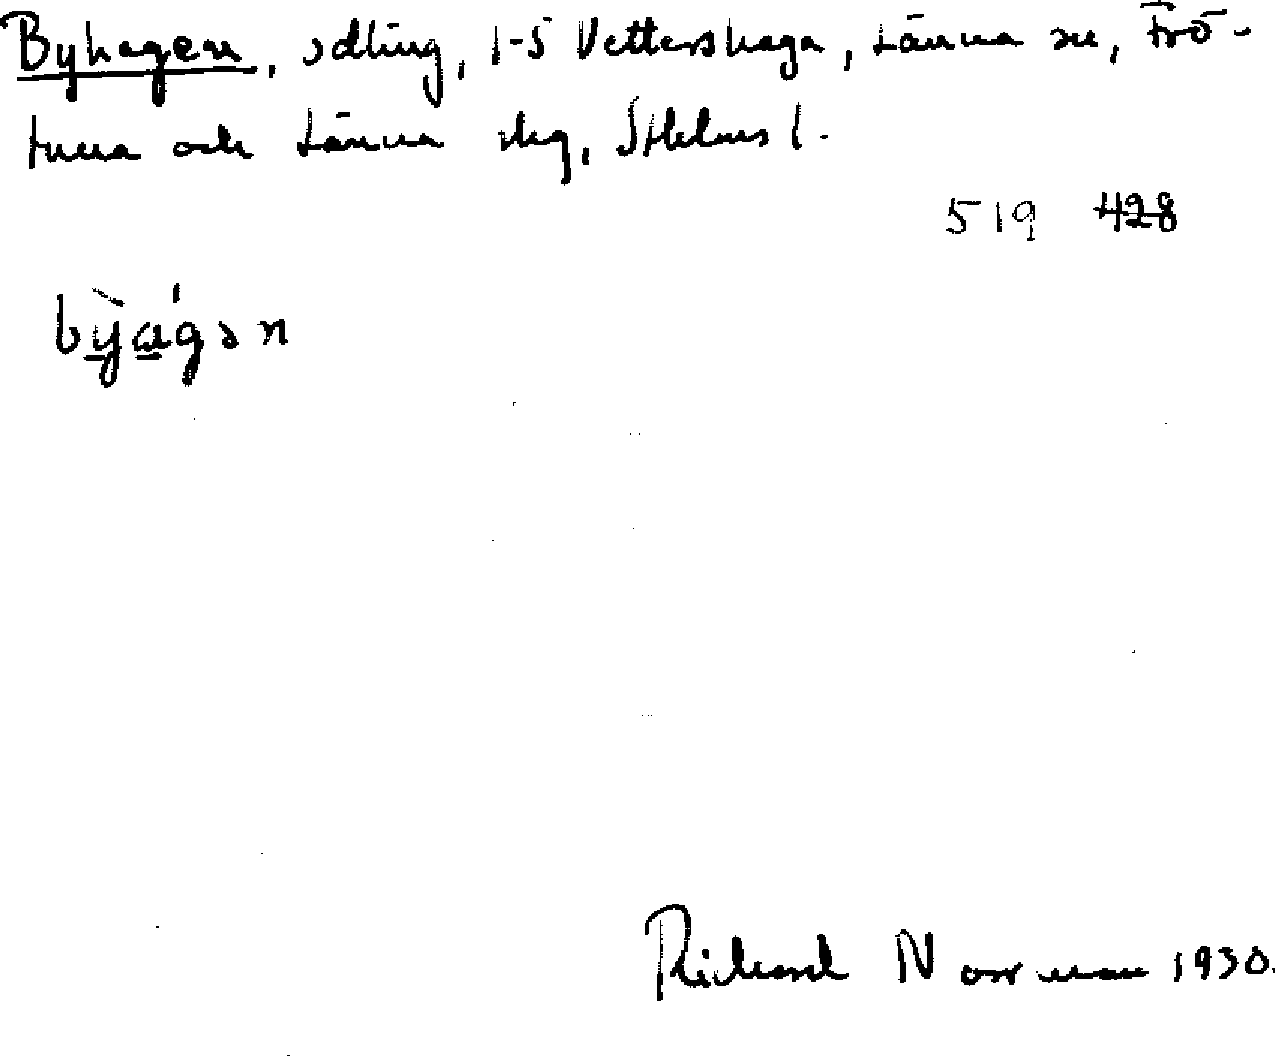 Byhagen, odling, 1-5 Vettershaga, Länna sn, Frö-
tuna och Länna slg, Sthlms l.
519 428
bỳa̍gən
Rickard Norrman 1930.